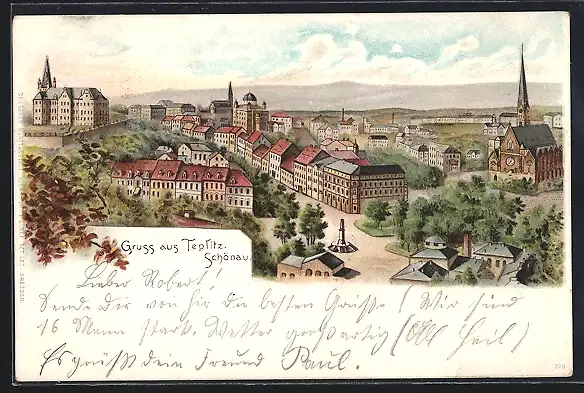 Gruss aus Teplitz.
Schönau.
Lieber Robert!
Sende dir von hir die besten Grüße (Wir sind
16 Mann stark. Wetter großartig (All Heil)
Es grüßt dein Freund Paul.